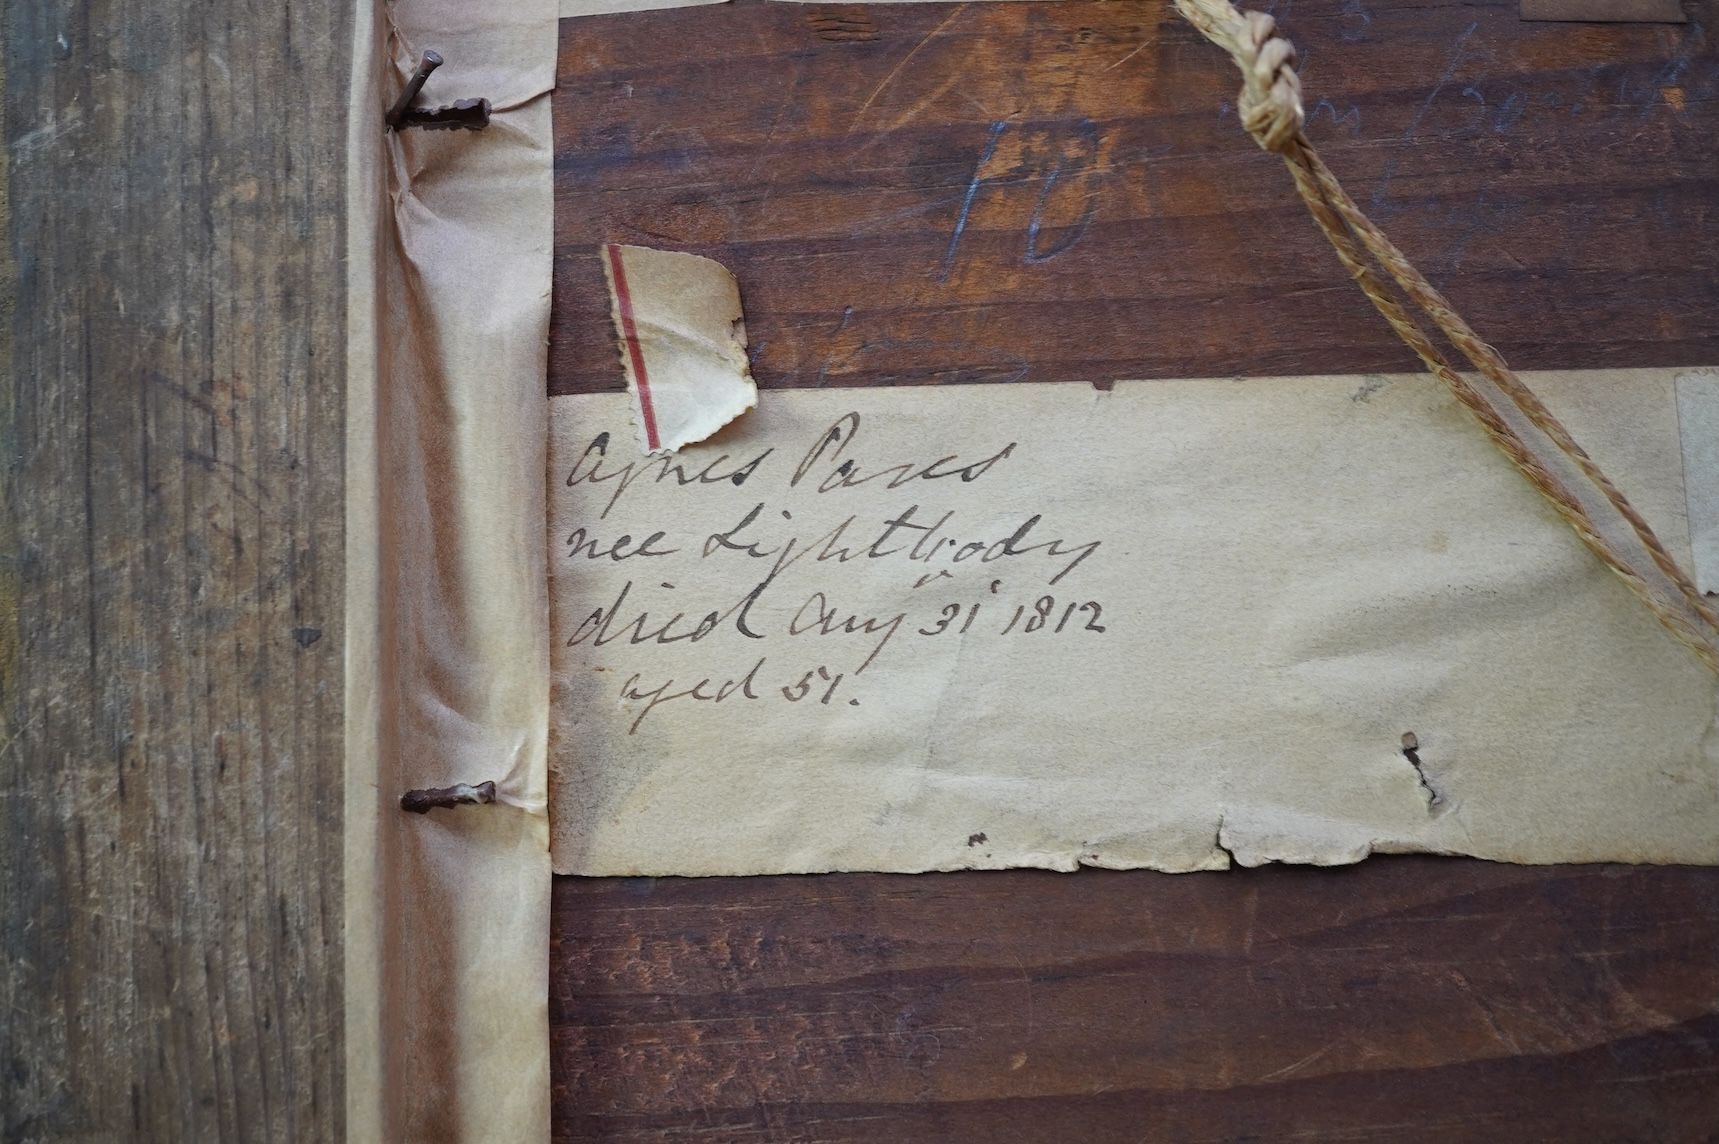 10
Agnes Pares
nee Lightbody
died Aug 31 1812
aged 51.